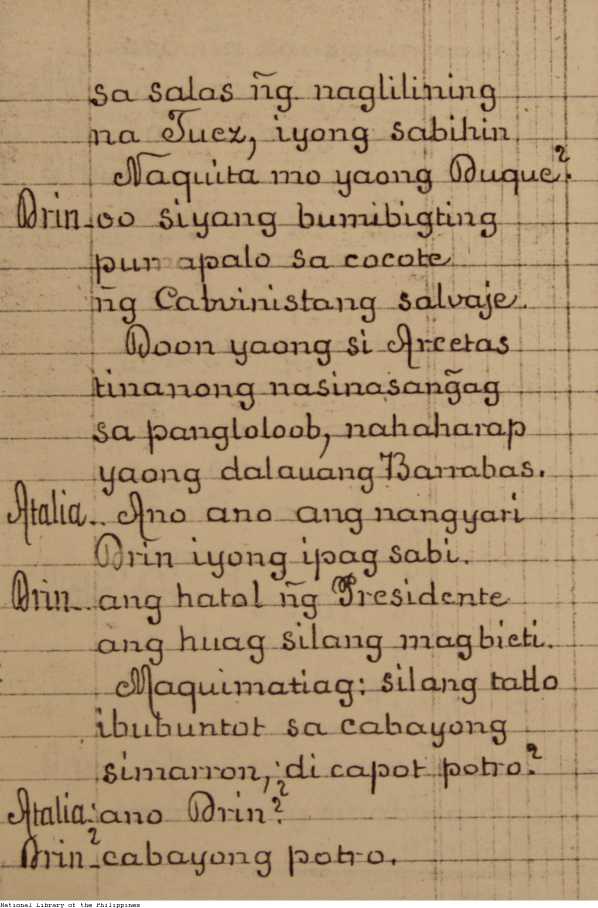 sa salas ñg naglilining
na Juez, iyong sabihin
Naquita mo yaong Duque?
Drin - oo siyang bumibigting
pumapalo sa cocote
ñg Calvinistang salvaje.
Doon yaong si Arcetas
tinanong nasinasang̃ag
sa pangloloob, nahaharap
yaong dalauang Barrabas.
Atalia.. Ano ano ang nangyari
Drin iyong ipag sabi.
Drin - ang hatol ñg Presidente
ang huag silang magbicti.
Maquimatiag: silang tatlo
ibubuntot sa cabayong
simarron, di capot potro?
Atalia: ano Drin?
Drin - cabayong potro.
National Library of the Philippines